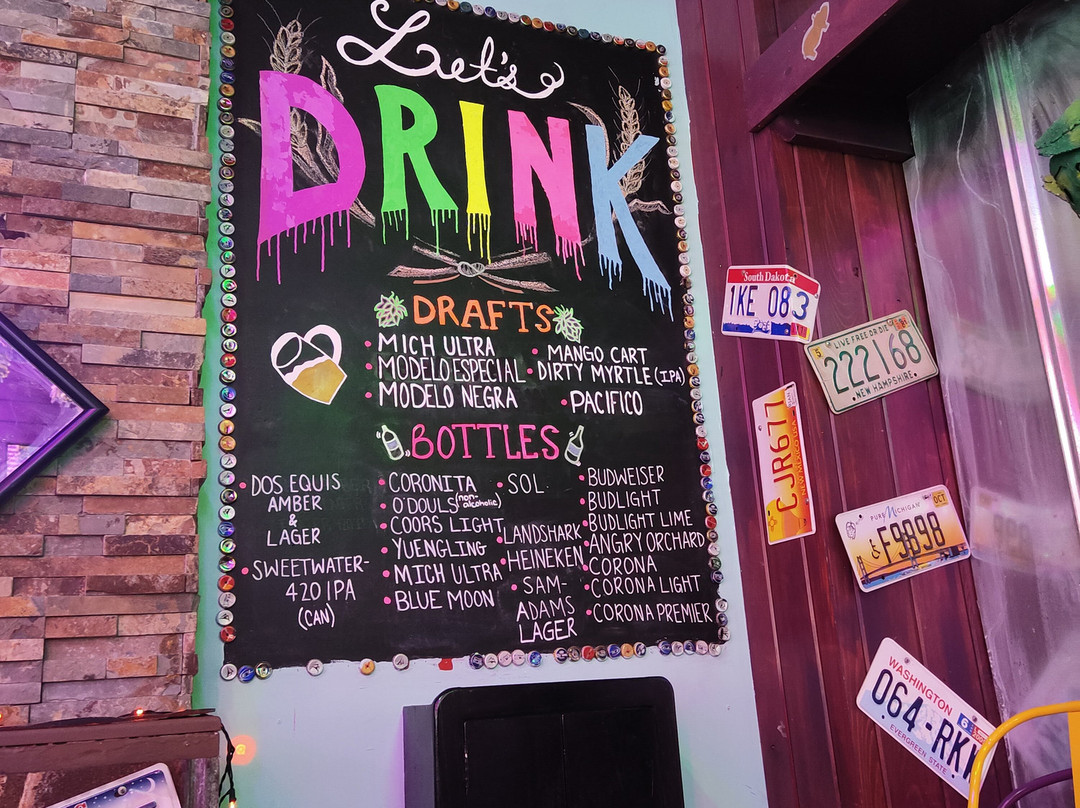 Let's
DRINK
DRAFTS
• MICH ULTRA
• MODELO ESPECIAL
• MODELO NEGRA
• MANGO CART
• DIRTY MYRTLE (IPA)
• PACIFICO
BOTTLES
• DOS EQUIS
AMBER
&
LAGER
• SWEETWATER-
420 IPA
(CAN)
• CORONITA
• O'DOULS (non-alcoholic)
• COORS LIGHT
• YUENGLING
• MICH ULTRA
• BLUE MOON
• SOL
• LANDSHARK
• HEINEKEN
• SAM-
ADAMS
LAGER
• BUDWEISER
• BUDLIGHT
• BUDLIGHT LIME
• ANGRY ORCHARD
• CORONA
• CORONA LIGHT
• CORONA PREMIER
South Dakota
1KE 083
LIVE FREE OR DIE
222168
NEW HAMPSHIRE
CJR677
NEW MEXICO USA
PURE MICHIGAN
OCT
F9B98
WASHINGTON
6
064-RK
EVERGREEN STATE